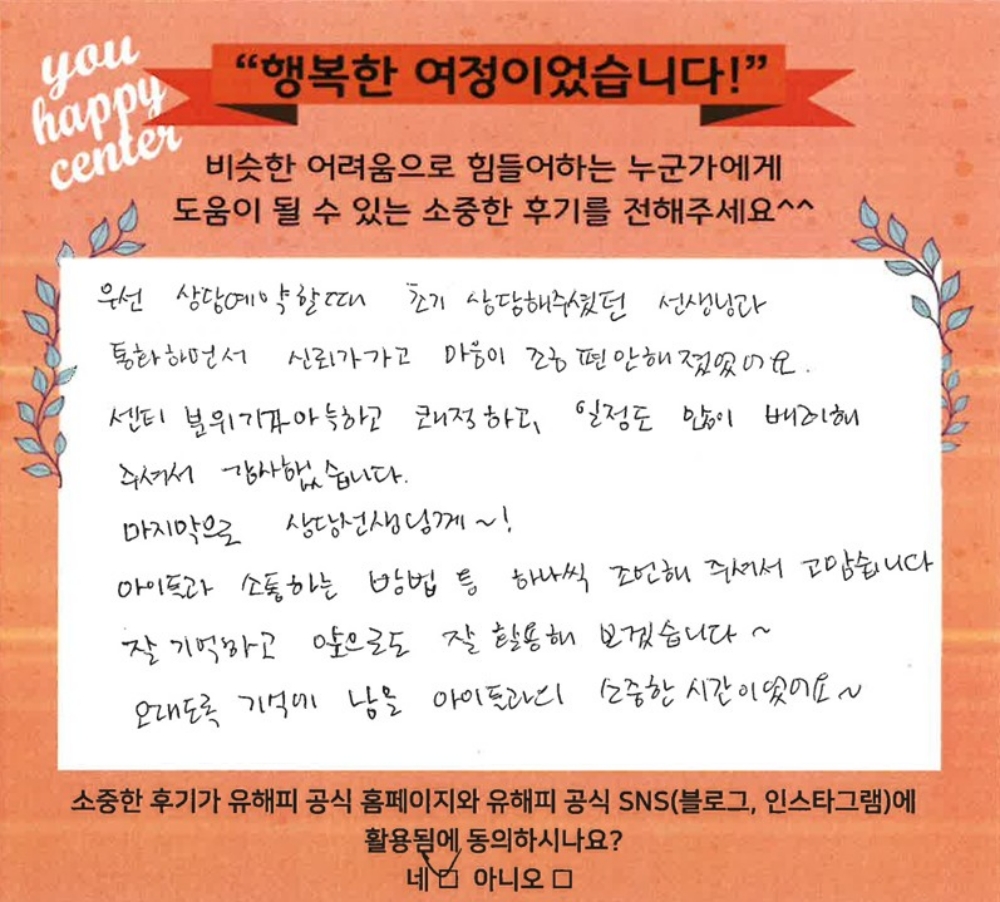 you
happy
center
“행복한 여정이었습니다!”
비슷한 어려움으로 힘들어하는 누군가에게
도움이 될 수 있는 소중한 후기를 전해주세요^^
우선 상담예약할때 초기 상담해주셨던 선생님과
통화하면서 신뢰가가고 마음이 조금 편안해졌었어요.
센터 분위기가아늑하고 쾌적하고, 일정도 많이 배려해
주셔서 감사했습니다.
마지막으로 상담선생님께~!
아이들과 소통하는 방법 등 하나씩 조언해 주셔서 고맙습니다
잘 기억하고 앞으로도 잘 활용해 보겠습니다~
오래도록 기억에 남을 아이들과의 소중한 시간이었어요~
소중한 후기가 유해피 공식 홈페이지와 유해피 공식 SNS(블로그, 인스타그램)에
활용됨에 동의하시나요?
네 □ 아니오 □